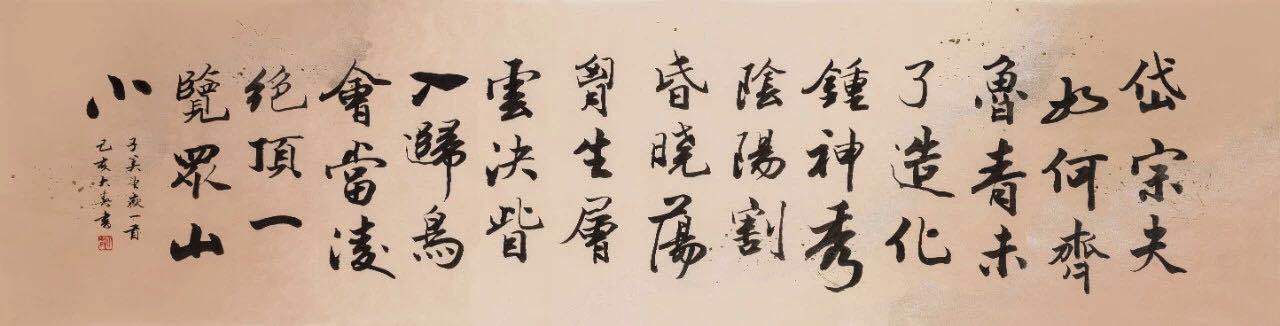 岱宗夫
如何齊
魯青未
了造化
鍾神秀
陰陽割
昏晓蕩
胷生層
雲決眥
入歸鳥
會當凌
絶頂一
覽眾山
小
子美望嶽一首
己亥大春書